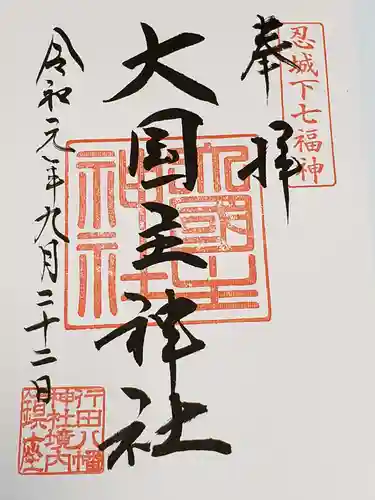 奉拝
忍城下七福神
大国主神社
大國主神社
令和元年九月二十二日
行田八幡
神社境内
鎮座